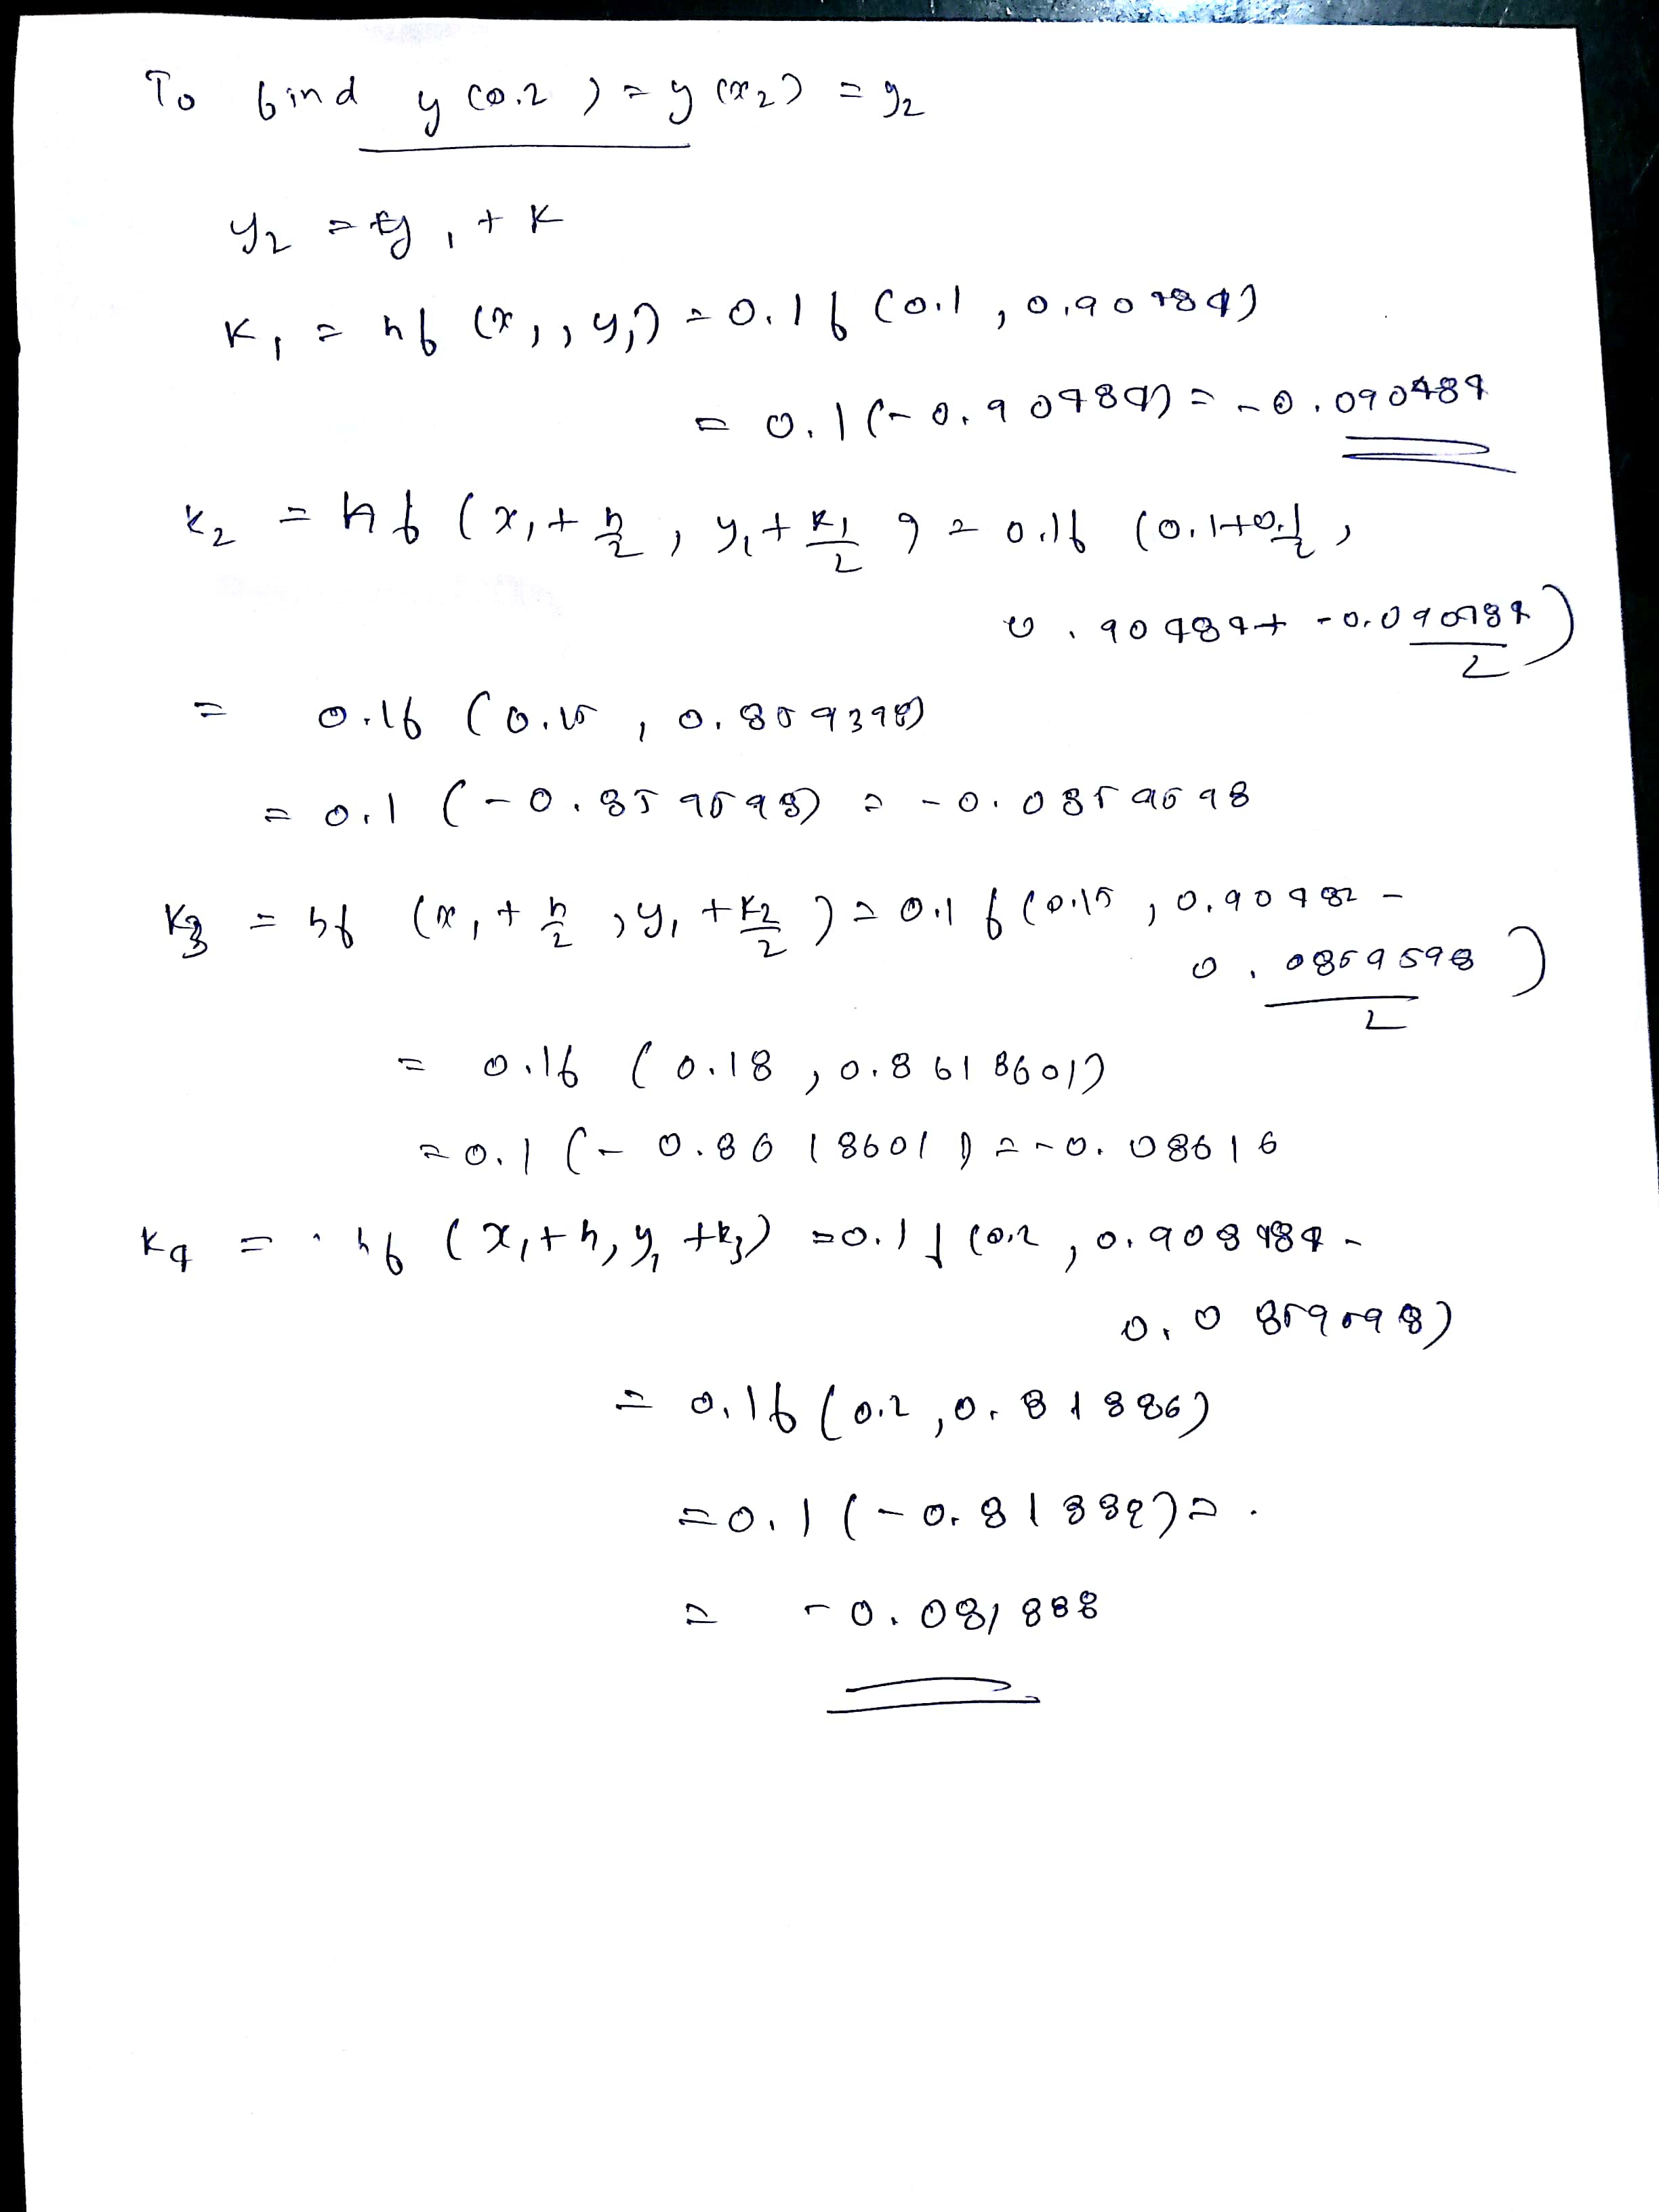 To find y(0.2) = y(x₂) = y₂
y₂ = y₁ + K
K₁ = hf(x₁, y₁) = 0.1f(0.1, 0.90484)
= 0.1(-0.90484) = -0.090484
K₂ = hf(x₁ + h/2, y₁ + K₁/2) = 0.1f(0.1+0.1/2,
0.90484 + -0.090484/2)
= 0.1f(0.15, 0.8594398)
= 0.1(-0.859598) = -0.0859598
K₃ = hf(x₁ + h/2, y₁ + K₂/2) = 0.1f(0.15, 0.90482 -
0.0859598/2)
= 0.1f(0.18, 0.8618601)
= 0.1(-0.8618601) = -0.08616
K₄ = hf(x₁+h, y₁+k₃) = 0.1f(0.2, 0.908484 -
0.0859598)
= 0.1f(0.2, 0.81886)
= 0.1(-0.81888) =
= -0.081888